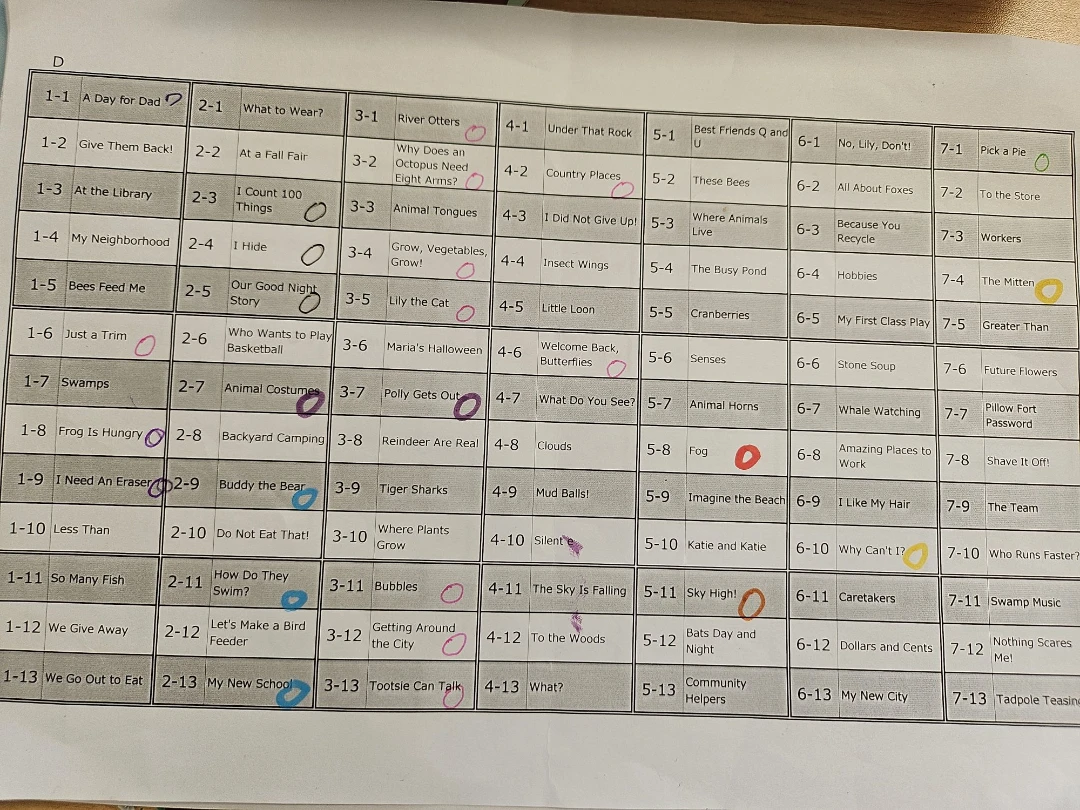 D
1-1 A Day for Dad 2-1 What to Wear? 3-1 River Otters 4-1 Under That Rock 5-1 Best Friends Q and U 6-1 No, Lily, Don't! 7-1 Pick a Pie
1-2 Give Them Back! 2-2 At a Fall Fair 3-2 Why Does an Octopus Need Eight Arms? 4-2 Country Places 5-2 These Bees 6-2 All About Foxes 7-2 To the Store
1-3 At the Library 2-3 I Count 100 Things 3-3 Animal Tongues 4-3 I Did Not Give Up! 5-3 Where Animals Live 6-3 Because You Recycle 7-3 Workers
1-4 My Neighborhood 2-4 I Hide 3-4 Grow, Vegetables, Grow! 4-4 Insect Wings 5-4 The Busy Pond 6-4 Hobbies 7-4 The Mitten
1-5 Bees Feed Me 2-5 Our Good Night Story 3-5 Lily the Cat 4-5 Little Loon 5-5 Cranberries 6-5 My First Class Play 7-5 Greater Than
1-6 Just a Trim 2-6 Who Wants to Play Basketball 3-6 Maria's Halloween 4-6 Welcome Back, Butterflies 5-6 Senses 6-6 Stone Soup 7-6 Future Flowers
1-7 Swamps 2-7 Animal Costumes 3-7 Polly Gets Out 4-7 What Do You See? 5-7 Animal Horns 6-7 Whale Watching 7-7 Pillow Fort Password
1-8 Frog Is Hungry 2-8 Backyard Camping 3-8 Reindeer Are Real 4-8 Clouds 5-8 Fog 6-8 Amazing Places to Work 7-8 Shave It Off!
1-9 I Need An Eraser 2-9 Buddy the Bear 3-9 Tiger Sharks 4-9 Mud Balls! 5-9 Imagine the Beach 6-9 I Like My Hair 7-9 The Team
1-10 Less Than 2-10 Do Not Eat That! 3-10 Where Plants Grow 4-10 Silent e 5-10 Katie and Katie 6-10 Why Can't I? 7-10 Who Runs Faster?
1-11 So Many Fish 2-11 How Do They Swim? 3-11 Bubbles 4-11 The Sky Is Falling 5-11 Sky High! 6-11 Caretakers 7-11 Swamp Music
1-12 We Give Away 2-12 Let's Make a Bird Feeder 3-12 Getting Around the City 4-12 To the Woods 5-12 Bats Day and Night 6-12 Dollars and Cents 7-12 Nothing Scares Me!
1-13 We Go Out to Eat 2-13 My New School 3-13 Tootsie Can Talk 4-13 What? 5-13 Community Helpers 6-13 My New City 7-13 Tadpole Teasin